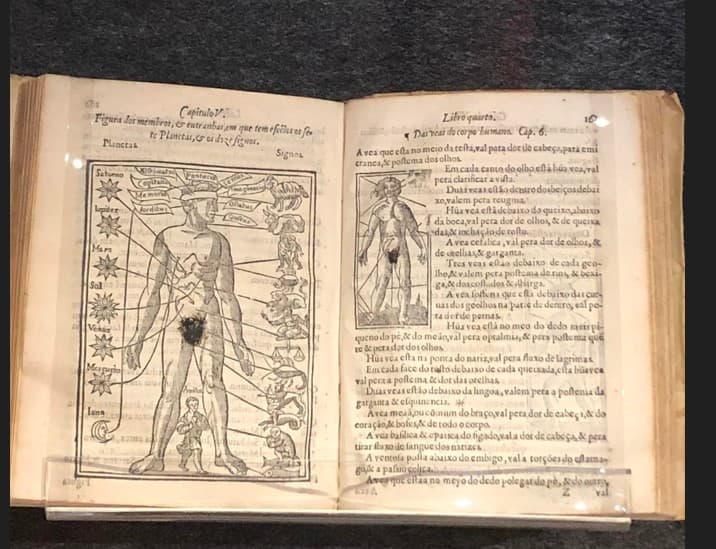 Capitulo V.
Figura dos membros, & entranhas, em que tem efeitos os se-
te Planetas, & os doze signos.
Planetas
Signos
Saturno
Iupiter
Mars
Sol
Venus
Mercurio
Luna
Memoria
Fantasia
Olfatus
Gustus
Libro quarto.
Das veas do corpo humano. Cap. 6.
A vea que está no meio da testa, val pera dor de cabeça, para emi
cranea, & postema dos olhos.
Em cada canto do olho está hũa vea, val
pera clarificar a vista.
Duas veas estão dentro dos beiços debai
xo, valem pera reugma.
Hũa vea está debaixo do queixo, abaixo
da boca, val pera dor de olhos, & de queixa
das, & inchação de rosto.
A vea cefalica, val pera dor de olhos, &
de orelhas, & garganta.
Tres veas estão debaixo de cada geo-
lho, & valem pera postema de rins, & bexi-
ga, & dos costados &
A vea sofena que está debaixo das cur-
uas dos geolhos na parte de dentro, val pe-
ra dor de pernas.
Hũa vea está no meo do dedo mais pi-
queno do pè, & do meão, val pera opsalmia, & pera postema que
te & pera dor dos olhos.
Hũa vea esta na ponta do nariz, val pera fluxo de lagrimas.
Em cada face do rosto debaixo de cada queixada, esta hũa vea
val pera a postema & dor das orelhas.
Duas veas estão debaixo da lingoa, valem pera a postema da
garganta & esquinencia.
A vea meaã, ou cómum do braço, val pera dor de cabeça, & do
coração, & bofes, & de todo o corpo.
A vea basilica & epatica do figado, val a dor de cabeça, & pera
tirar fluxo de sangue dos narizes.
A ventosa posta abaixo do embigo, val a torções do estama-
go, & a paixão colica.
A vea que está no meyo do dedo polegar do pè, & do outro,
Z val